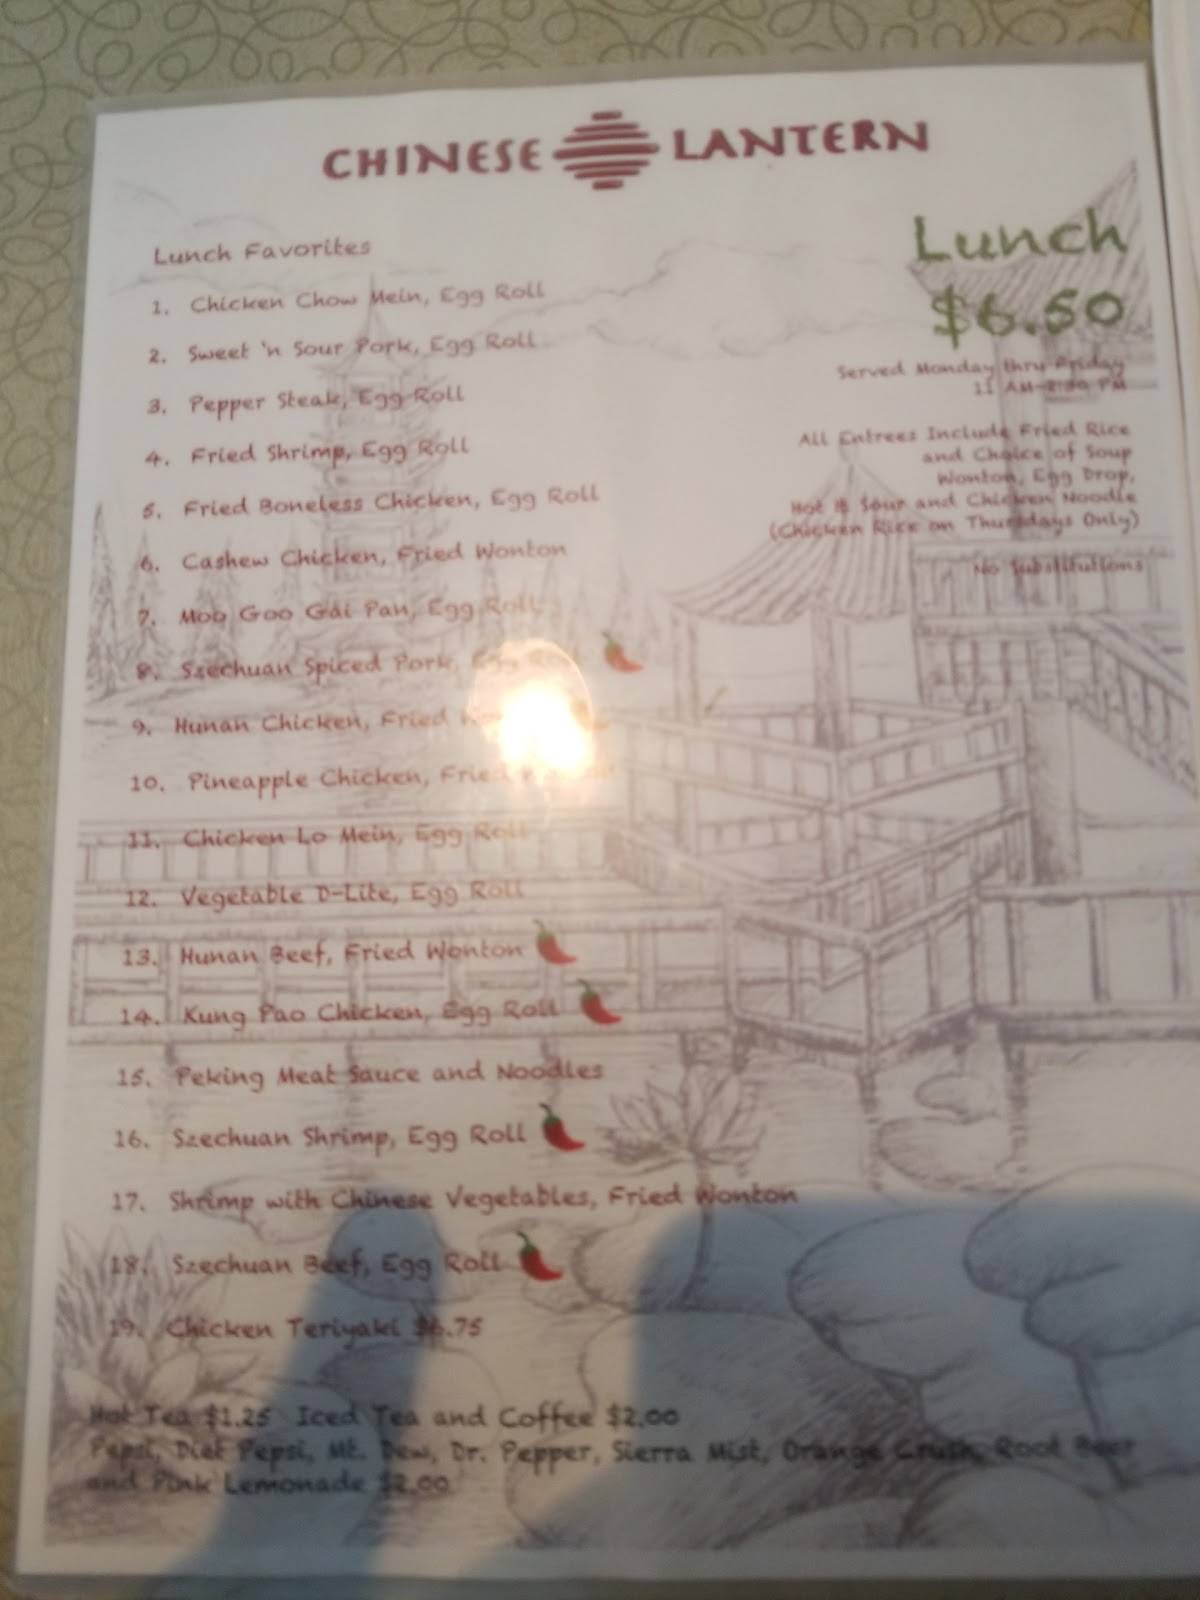 CHINESE LANTERN
Lunch
$6.50
Served Monday thru Friday
11 AM-2:30 PM
All Entrees Include Fried Rice
and Choice of Soup
Wonton, Egg Drop,
Hot & Sour and Chicken Noodle
(Chicken Rice on Thursdays Only)
No Substitutions
Lunch Favorites
1. Chicken Chow Mein, Egg Roll
2. Sweet 'n Sour Pork, Egg Roll
3. Pepper Steak, Egg Roll
4. Fried Shrimp, Egg Roll
5. Fried Boneless Chicken, Egg Roll
6. Cashew Chicken, Fried Wonton
7. Moo Goo Gai Pan, Egg Roll
8. Szechuan Spiced Pork, Egg Roll
9. Hunan Chicken, Fried
10. Pineapple Chicken, Fried
11. Chicken Lo Mein, Egg Roll
12. Vegetable D-Lite, Egg Roll
13. Hunan Beef, Fried Wonton
14. Kung Pao Chicken, Egg Roll
15. Peking Meat Sauce and Noodles
16. Szechuan Shrimp, Egg Roll
17. Shrimp with Chinese Vegetables, Fried Wonton
18. Szechuan Beef, Egg Roll
19. Chicken Teriyaki $6.75
Hot Tea $1.25 Iced Tea and Coffee $2.00
Pepsi, Diet Pepsi, Mt. Dew, Dr. Pepper, Sierra Mist, Orange Crush, Root Beer
and Pink Lemonade $2.00